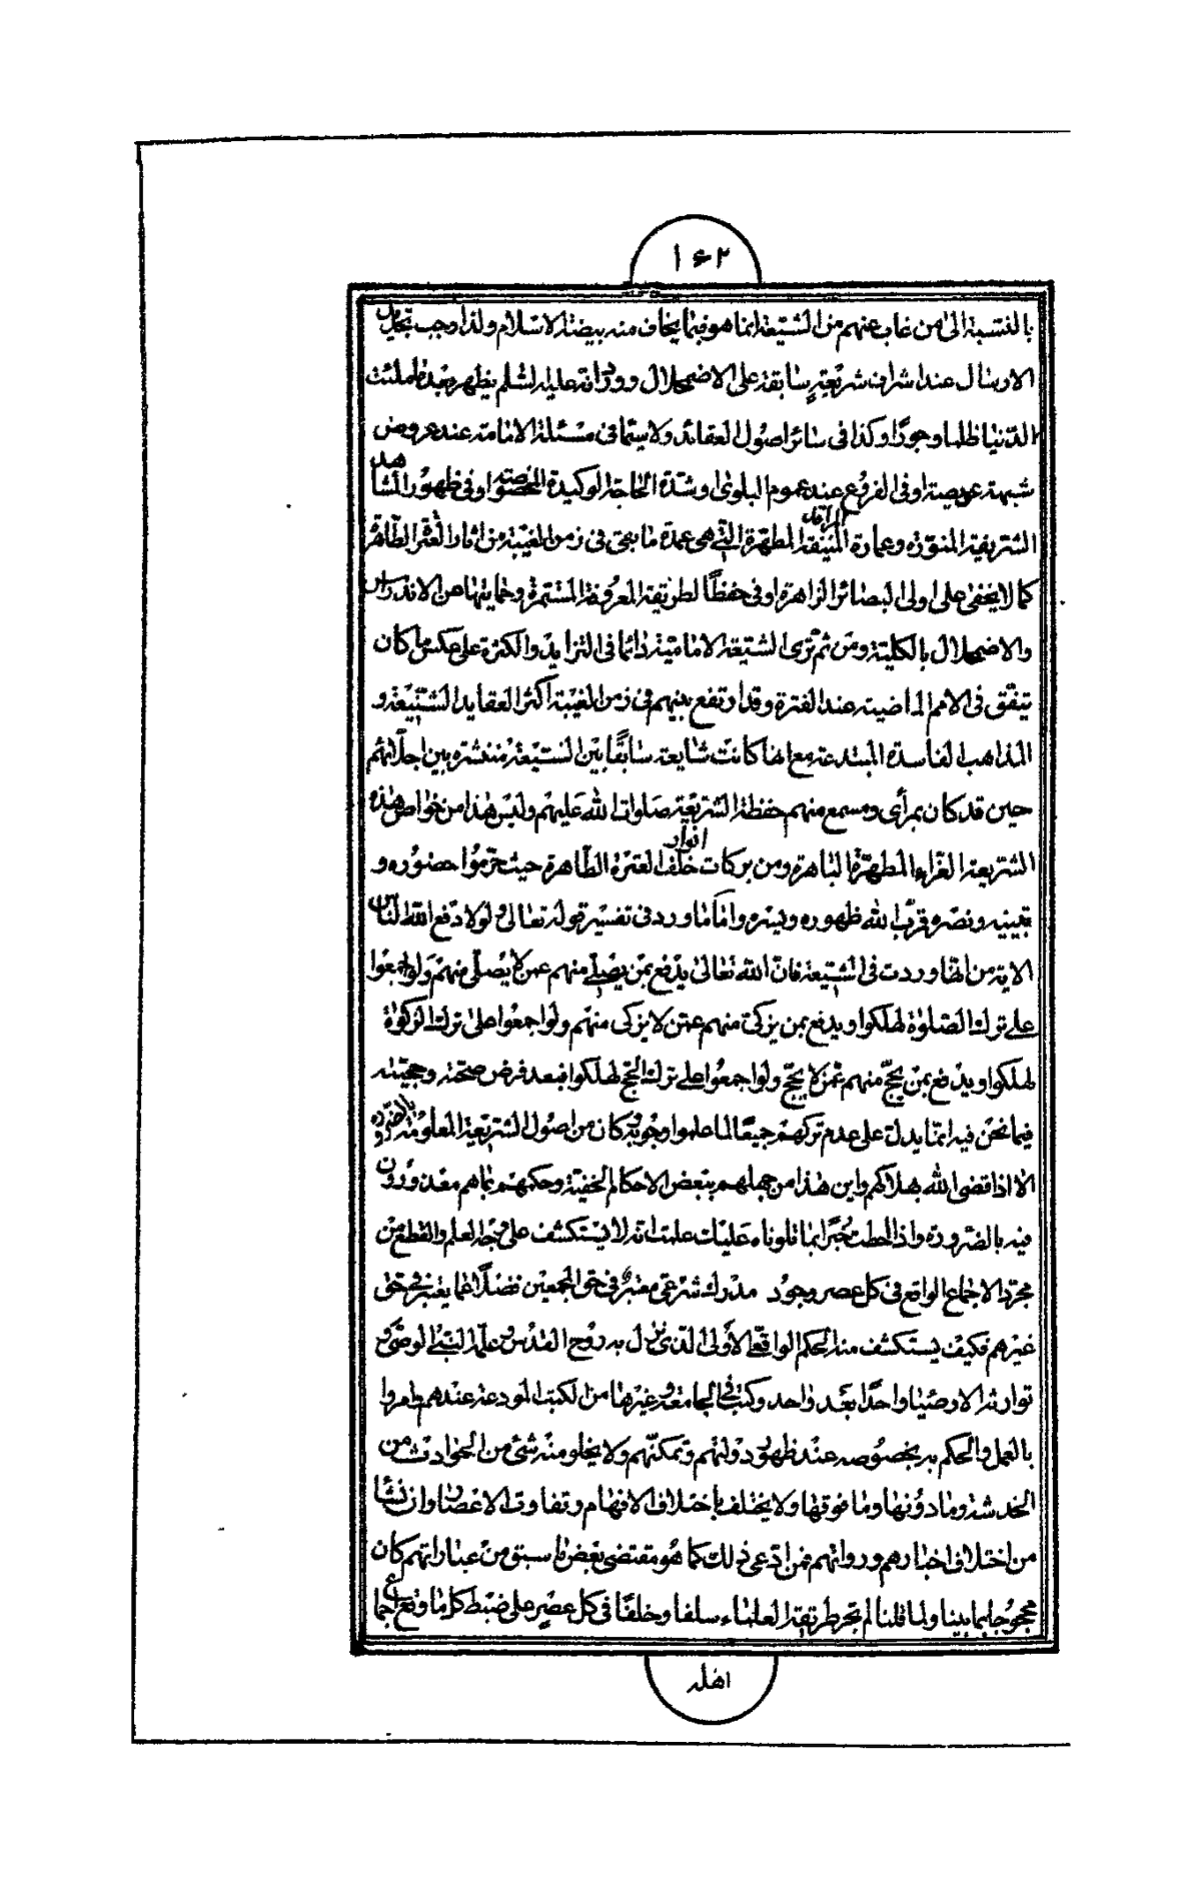 ١٦٢
بالنسبة الى من غاب عنهم من الشيعة انما هو فيما يخاف منه بيضة الاسلام ولذا وجب تجديد
الارسال عند اشراف شريعة سابقة على الاضمحلال وورد انه عليه السلم يظهر بعد ما ملئت
الدنيا ظلما وجورا وكذا في سائر اصول العقائد ولا سيما في مسئلة الامامة عند عروض
شبهة عويصة او في الفروع عند عموم البلوى او شدة الحاجة الوكيدة المخصوصة او في ظهور المشاهد
الشريفة المنورة وعمارة المراقد المنيفة المطهرة التي هي عمدة ما بقي في زمن الغيبة من اثار العترة الطاهرة
كما لا يخفى على اولى البصائر الزاهرة او في حفظ الطريقة المعروفة المستمرة وحمايتها من الاندراس
والاضمحلال بالكلية ومن ثم ترى الشيعة الامامية دائما في التزايد والكثرة على عكس ما كان
يتفق في الامم الماضية عند الفترة وقد ارتفع بينهم في زمن الغيبة اكثر العقايد الشنيعة و
المذاهب الفاسدة المبتدعة مع انها كانت شايعة سابقا بين الشيعة منتشرة بين اجلائهم
حين قد كان بمرأى ومسمع منهم حفظة الشريعة صلوات الله عليهم وليس هذا من خواص هذه
الشريعة الغراء المطهرة الباهرة ومن بركات انوار خلف العترة الطاهرة حيث حرموا حضوره و
تبيينه ونصره قرب الله ظهوره ويسره واما ما ورد في تفسير قوله تعالى ولولا دفع الله الناس
الاية من انها وردت في الشيعة فان الله تعالى يدفع بمن يصلي منهم عمن لا يصلى منهم ولو اجمعوا
على ترك الصلوة لهلكوا ويدفع بمن يزكى منهم عمن لا يزكى منهم ولو اجمعوا على ترك الزكوة
لهلكوا ويدفع بمن يحج منهم عمن لا يحج ولو اجمعوا على ترك الحج لهلكوا فبعد فرض صحته وحجيته
فيما نحن فيه انما يدل على عدم تركهم جميعا لما علموا وجوبه وكان من اصول الشريعة المعلومة بالضرورة
الا اذا قضى الله بهلاكهم واين هذا من جهلهم ببعض الاحكام الخفية وحكمهم بما هم معذورون
فيه بالضرورة واذا احطت خبرا بما تلوناه عليك علمت انه لا يستكشف على وجه العلم والقطع من
مجرد الاجماع الواقع في كل عصر وجود مدرك شرعي معتبر في حق المجمعين فضلا عما يعتبر في حق
غيرهم فكيف يستكشف منه الحكم الواقعي الأولى الذى نزل به روح القدس وعلمه النبي الوصي و
توارثه الاوصياء واحدا بعد واحد وكتب في الجامعة وغيرها من الكتب المودعة عندهم وامروا
بالعمل والحكم به بخصوصه عند ظهور دولتهم وتمكنهم ولا يخلو منه شئ من الحوادث من
الخدشة وما دونها وما فوقها ولا يختلف باختلاف الافهام وتفاوت الاعصار وان نشأ
من اختلاف اخبارهم ورواتهم فمن ادعى ذلك كما هو مقتضى بعض ما سبق من عباراتهم كان
محجوجا بما بينا ولما قلنا لم تجر طريقة العلماء سلفا وخلفا في كل عصر على ضبط كل ما وقع اجماع
اهله